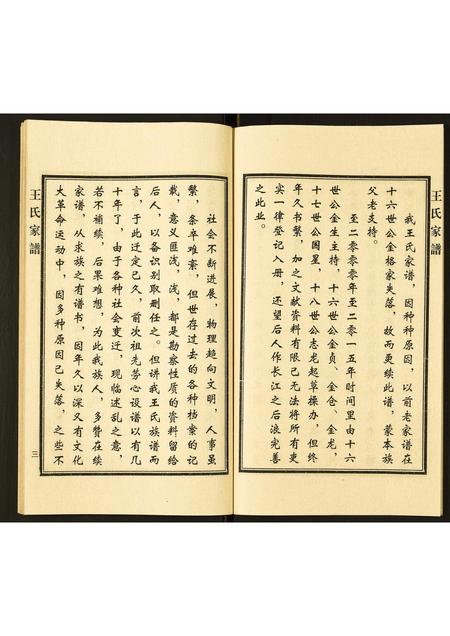 王氏家谱
我王氏家谱，因种种原因，以前老家谱在
十六世公金格家失落，故而更续此谱，蒙本族
父老支持。
至二零零零年至二零一五年时间里由十六
世公金生主持，十六世公金贞、金仓、金龙，
十七世公国星，十八世公志龙起草操办，但终
年久书繁，加之文献资料有限已无法将所有吏
实一律登记入册，还望后人作长江之后浪完善
之此业。
社会不断进展，物理趋向文明，人事虽
繁，条卒难素，但世存过去的各种档案的记
载，意义匪浅，浅，都是勘察性质的资料留给
后人，以备识别取删任之。但讲我王氏族谱而
言，于此迁定已久，前次祖先劳心设谱以有几
十年了，由于各种社会变迁，现临述乱之意，
若不补续，后果难想，为此我族人，多赞在续
家谱，从求族之有谱书，因年久以深又有文化
大革命运动中，因多种原因已失落，之些不
王氏家谱
三